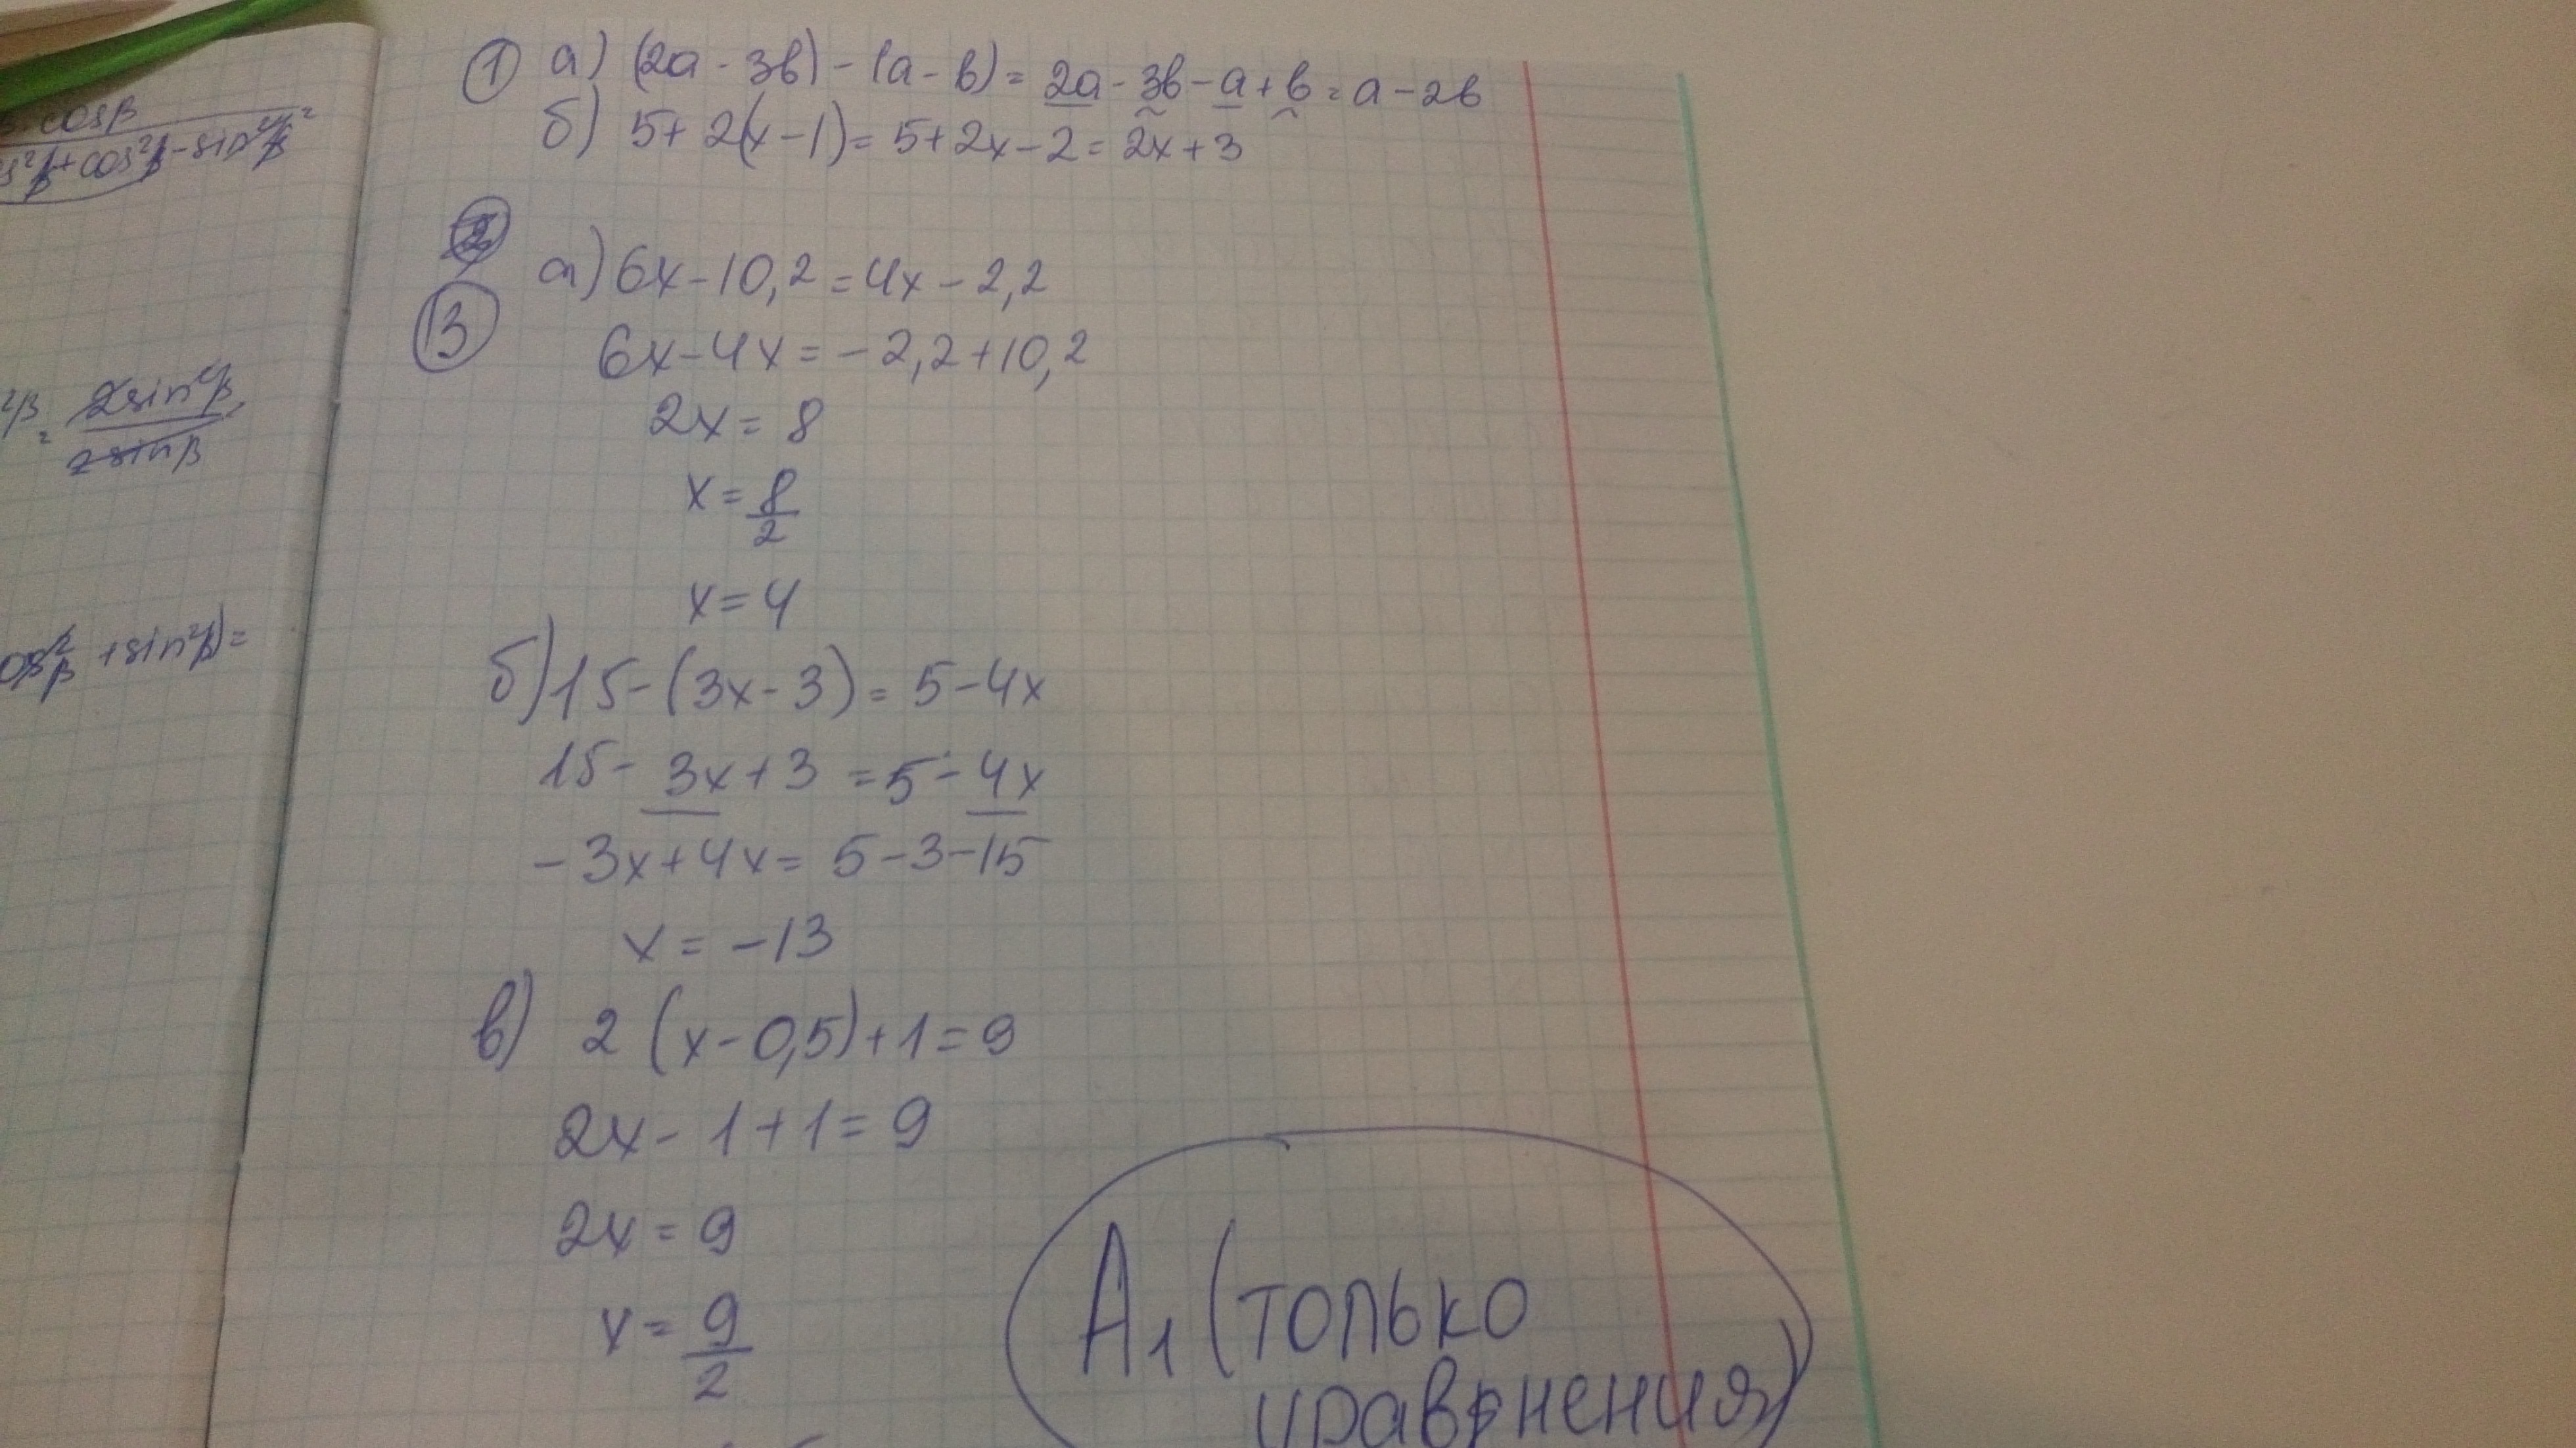 ① а) (2a - 3b) - (a - b) = 2a - 3b - a + b = a - 2b
б) 5 + 2(x - 1) = 5 + 2x - 2 = 2x + 3
③ а) 6x - 10,2 = 4x - 2,2
6x - 4x = -2,2 + 10,2
2x = 8
x = 8/2
x = 4
б) 15 - (3x - 3) = 5 - 4x
15 - 3x + 3 = 5 - 4x
-3x + 4x = 5 - 3 - 15
x = -13
в) 2 (x - 0,5) + 1 = 9
2x - 1 + 1 = 9
2x = 9
x = 9/2
А₁ (только
уравнения)
cosβ
²β + cos²β - sin²β =
²β = 2sin²β / 2sinβ
cos²β + sin²β) =